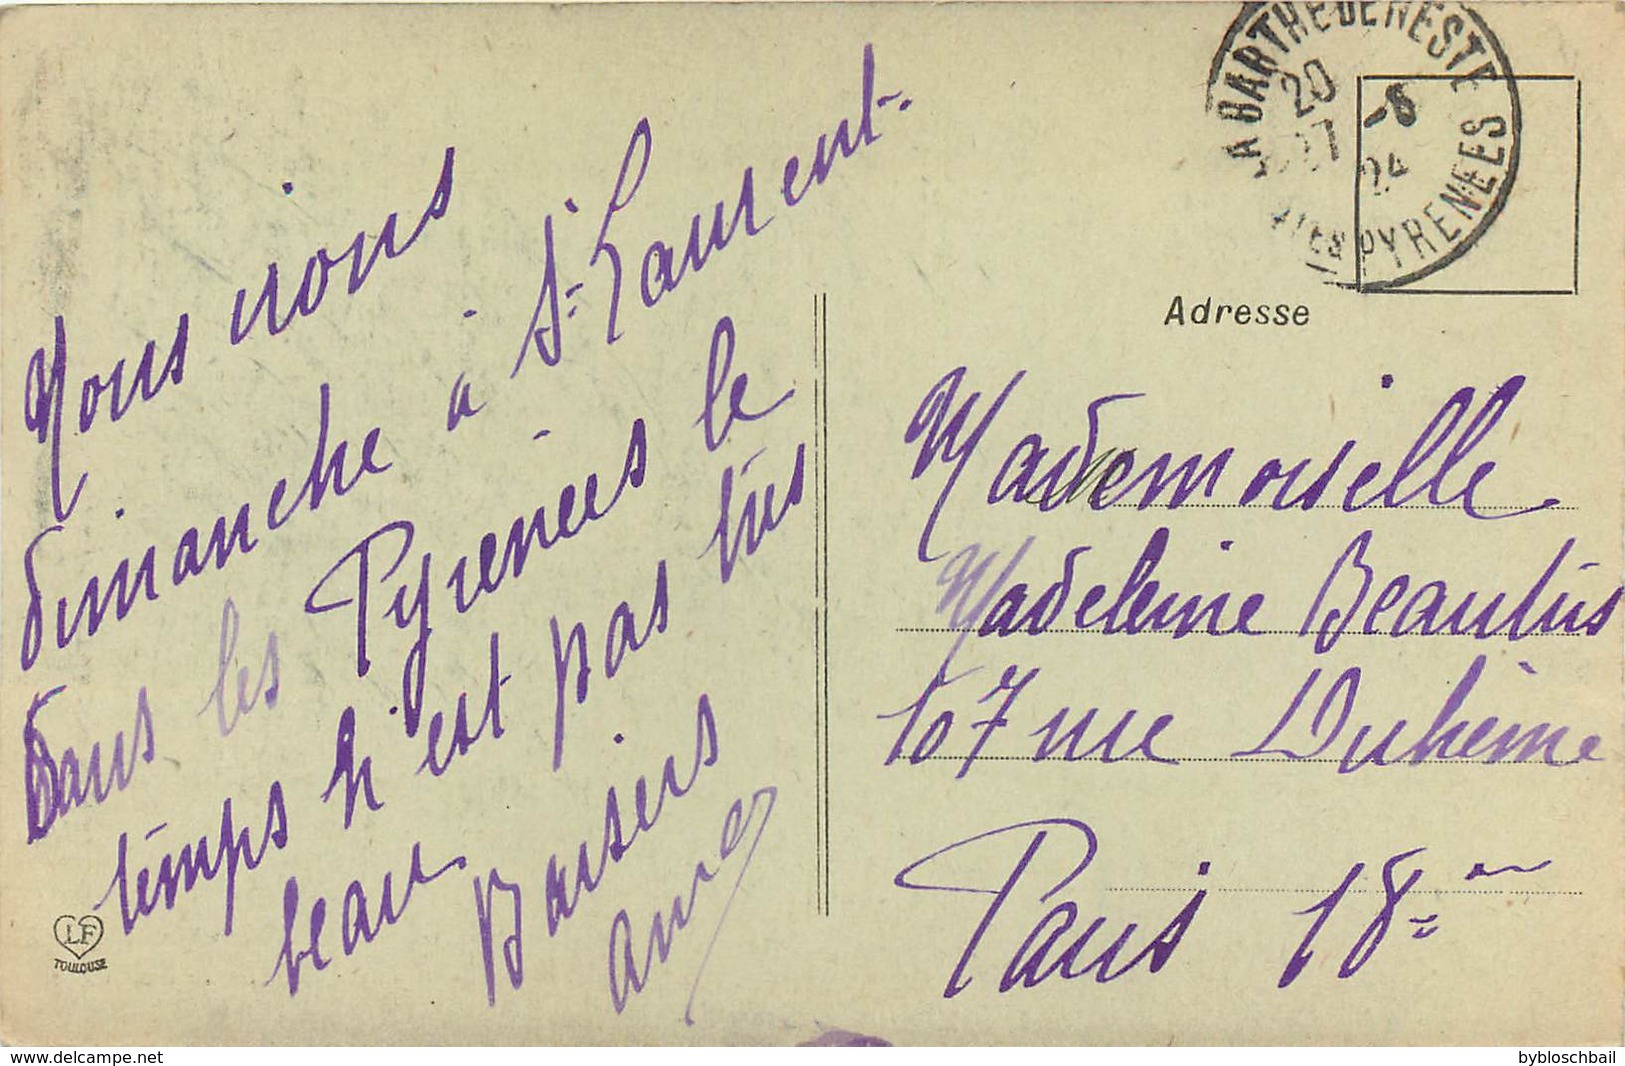 Nous irons
dimanche à St-Laurent.
dans les Pyrenées le
temps n'est pas très
beau
Baisers
LF
TOULOUSE
LA BARTHE DE NESTE
20 -8
24
Htes PYRENEES
Adresse
Mademoiselle
Madeleine Beautus
107 rue Duhême
Paris 18=
www.delcampe.net
bybloschbail